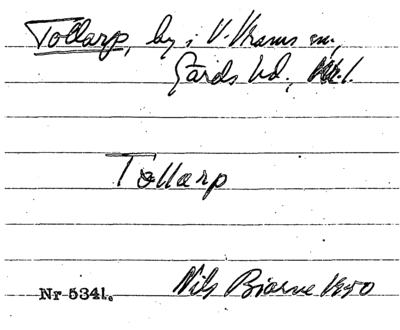 Tollarp, by i V. Vrams sn.,
Gärds hd., Kr. l.
Tollarp
Nr 5341. Nils Bjarne 1950